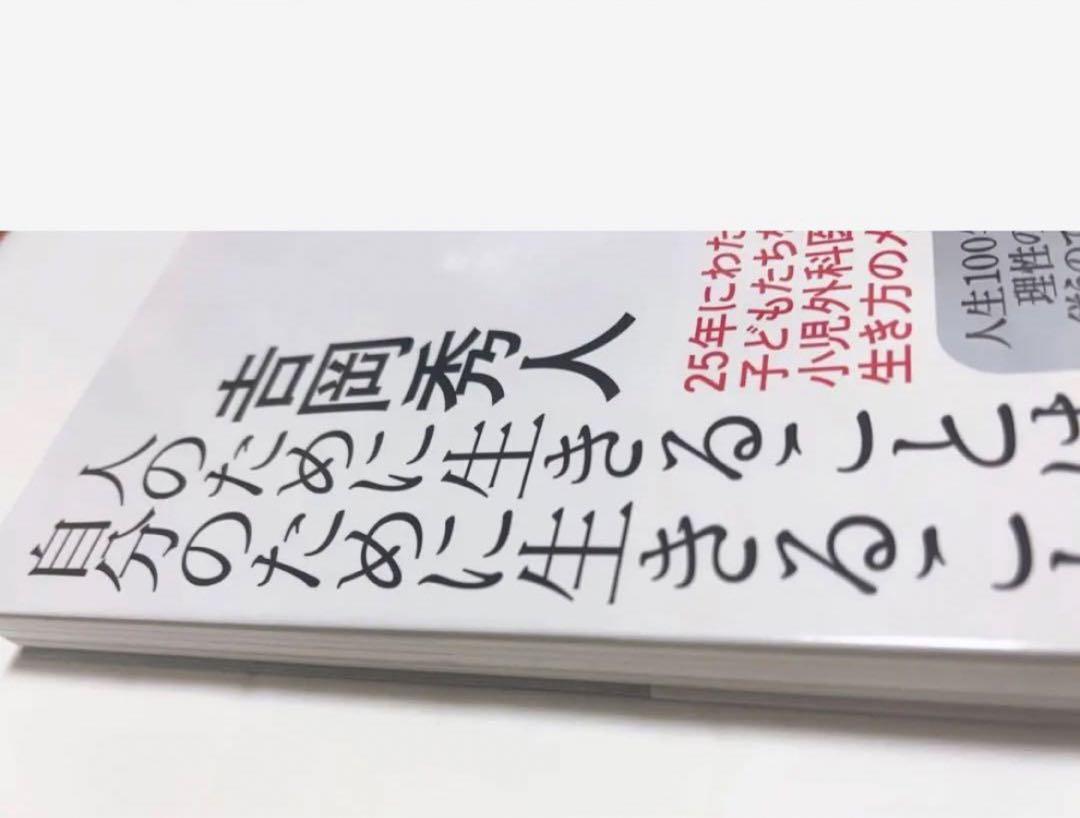 吉岡秀人
人のために生きることは
自分のために生きること
25年にわた
子どもたち
小児外科医
生き方の
人生100
理性の